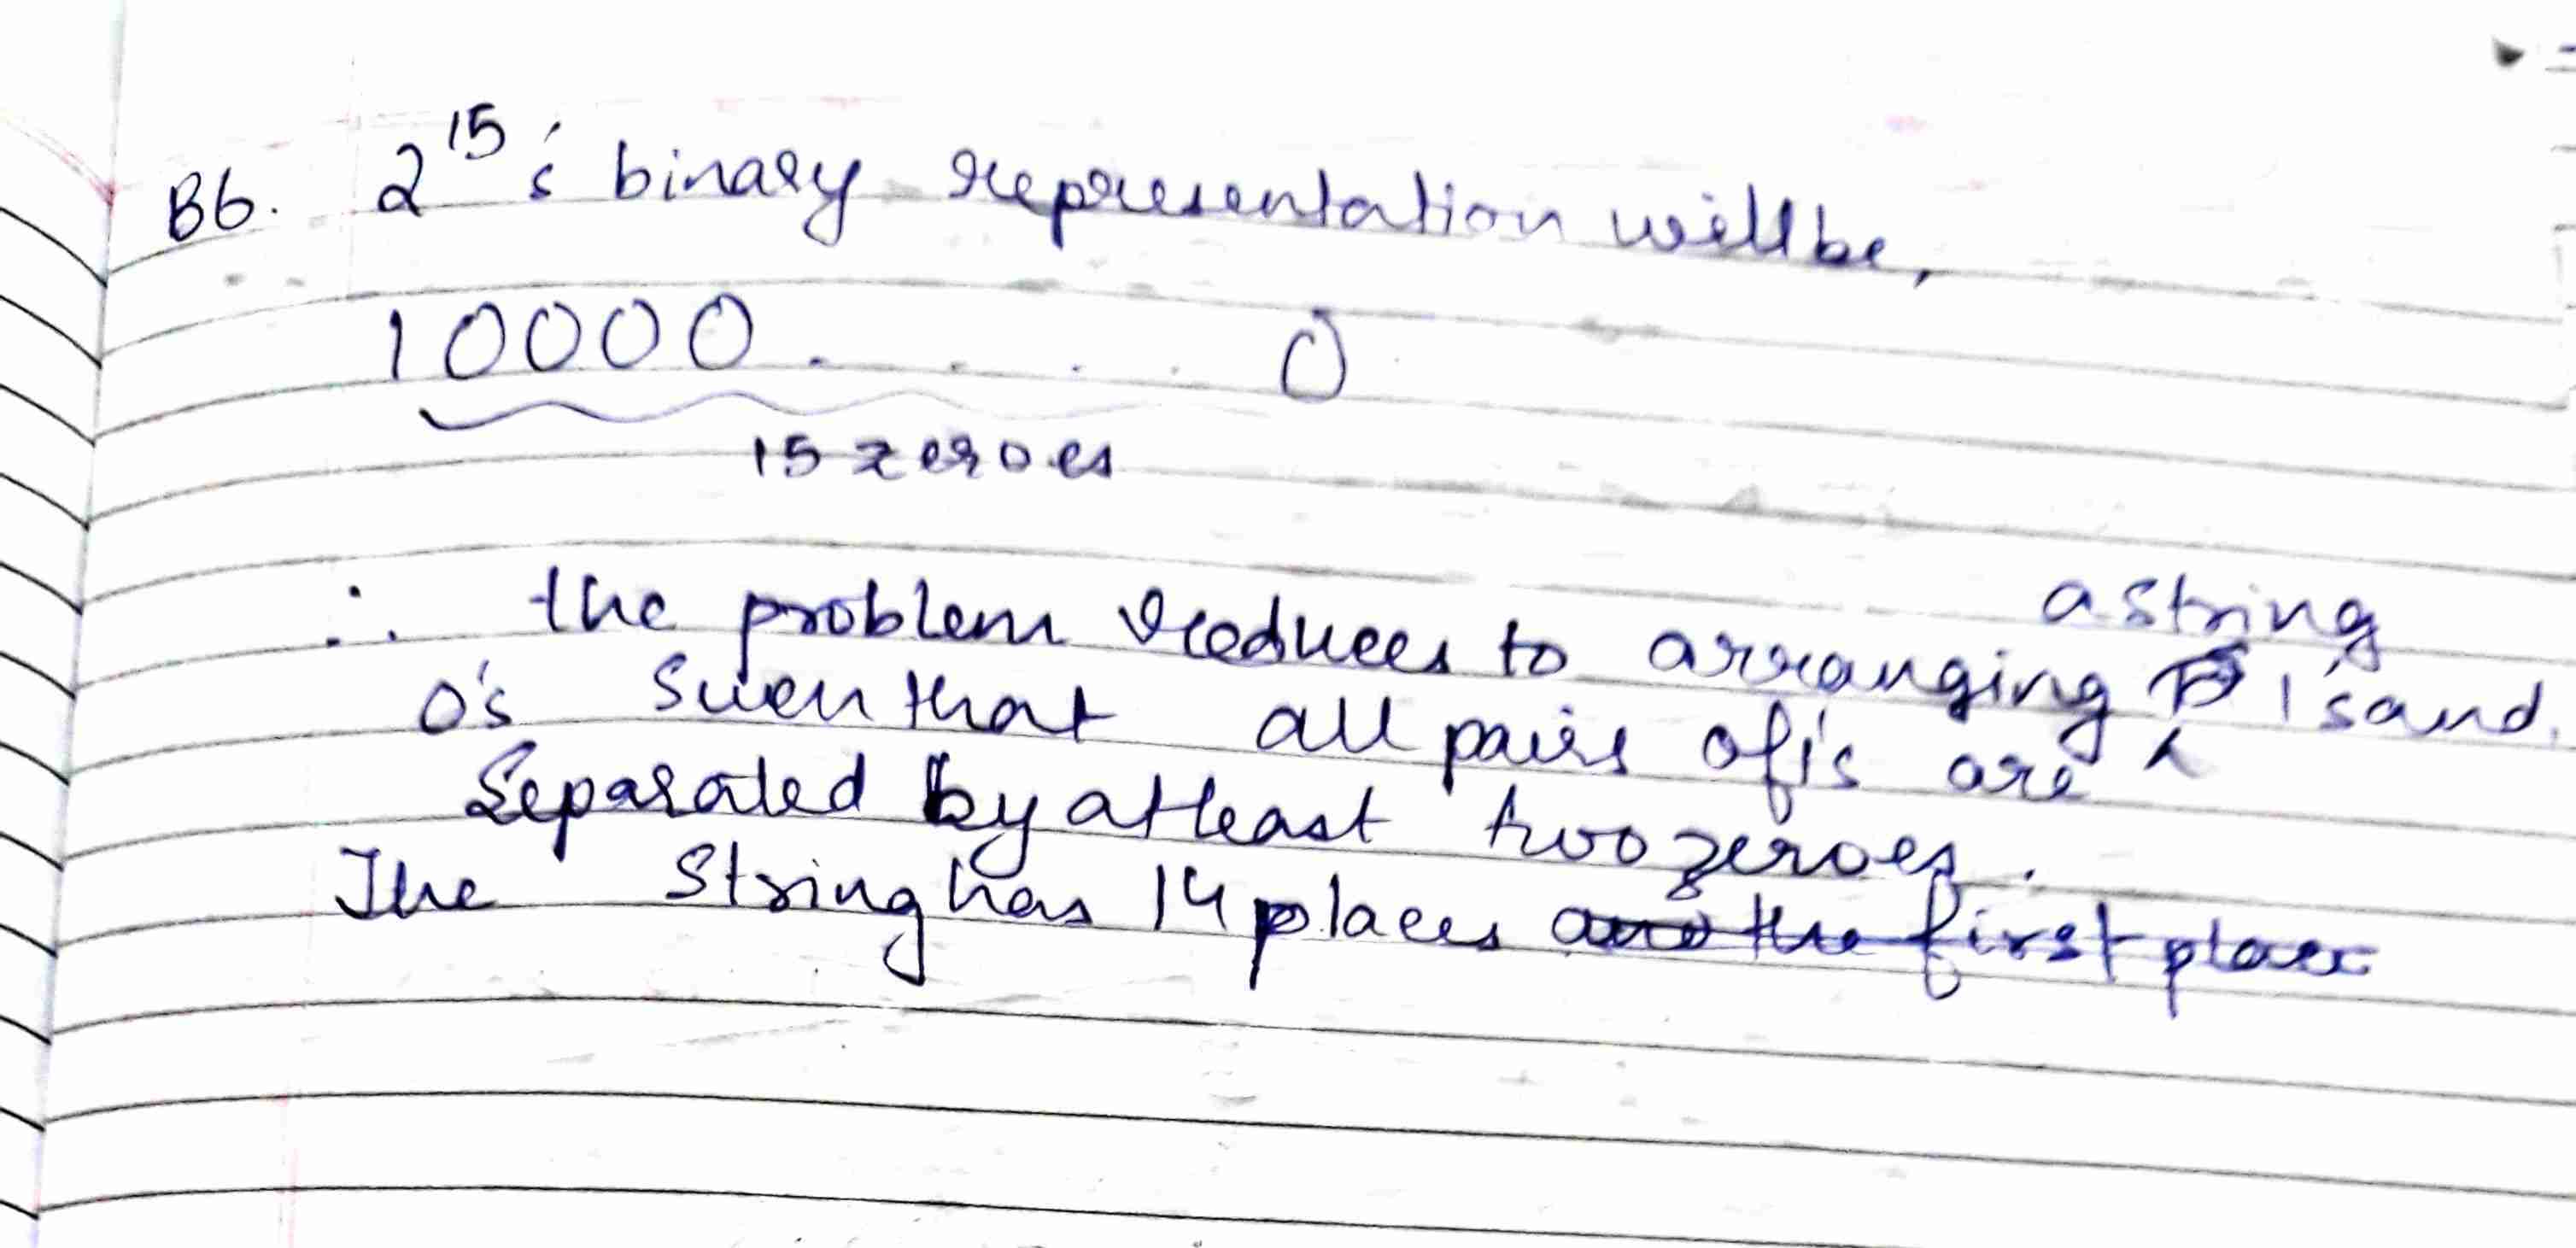 B6. 2^15's binary representation will be,
10000 . . . . 0
15 zeroes
∴ the problem reduces to arranging a string 1's and
0's such that all pairs of 1's are
Separated by atleast two zeroes.
The String has 14 places and the first place